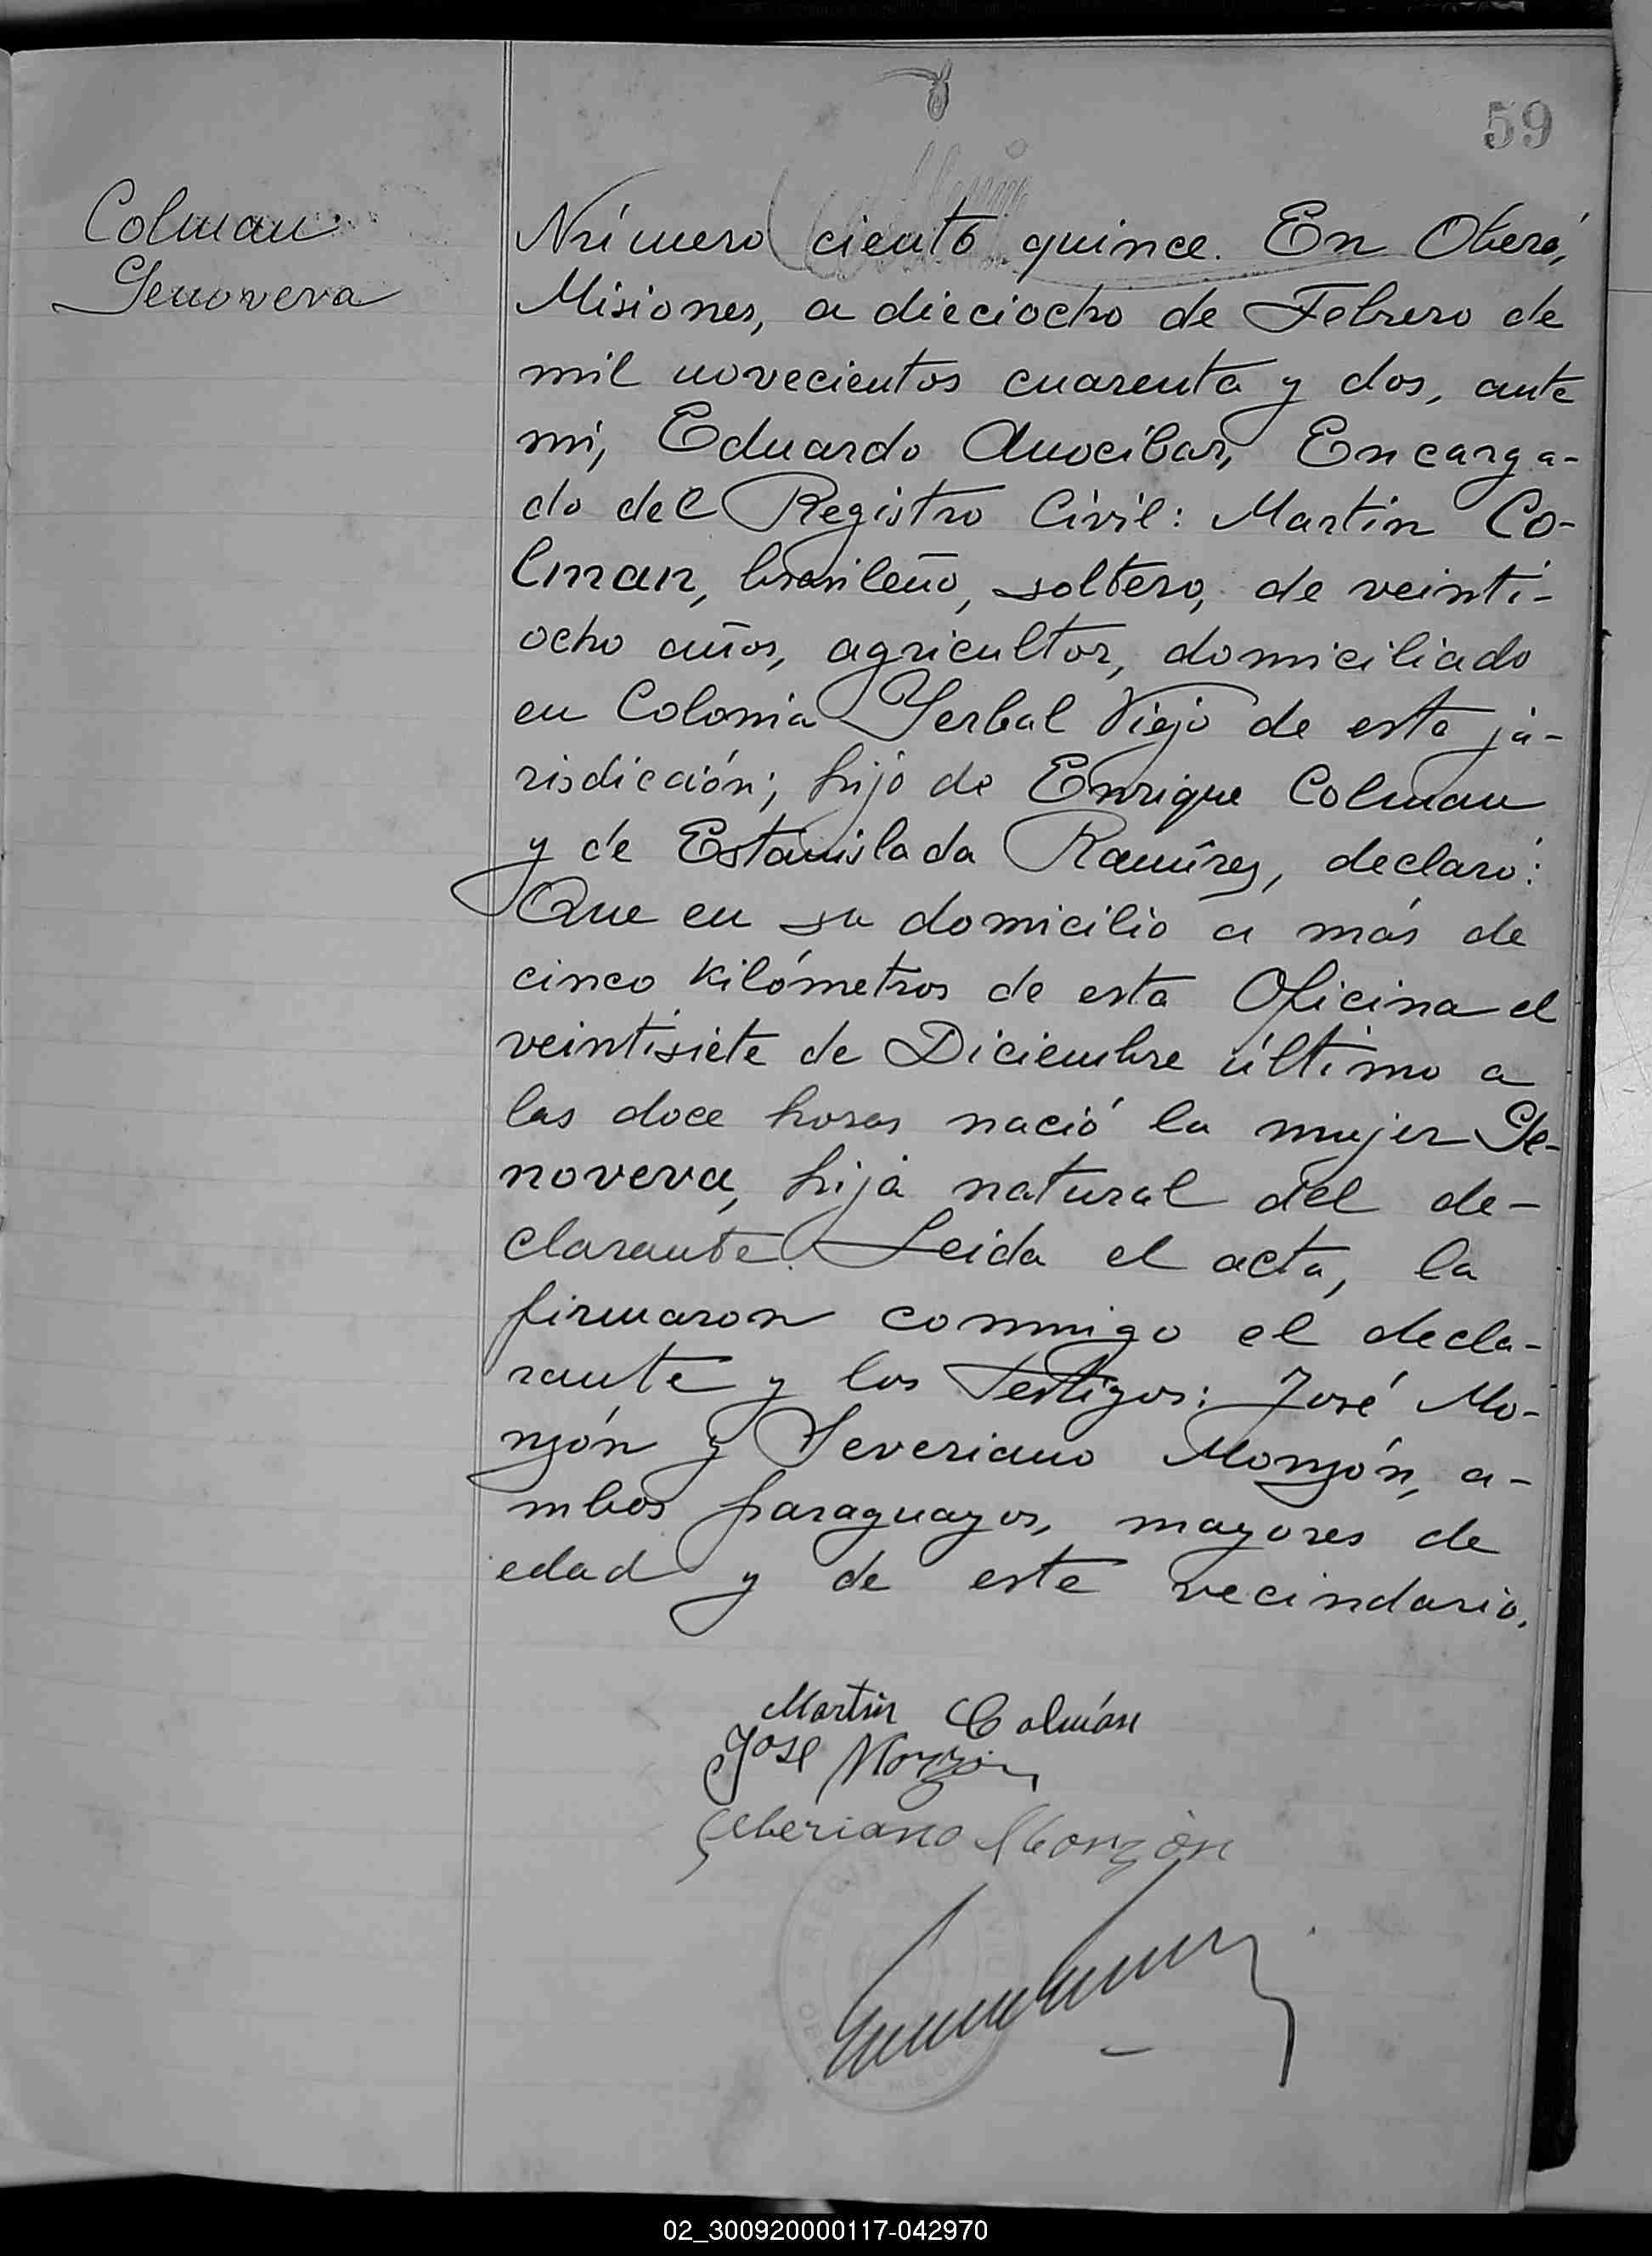 59
Colman
Genoveva
Número ciento quince. En Oberá,
Misiones, a dieciocho de Febrero de
mil novecientos cuarenta y dos, ante
mi, Eduardo Anocibar, Encarga-
do del Registro Civil: Martin Co-
lman, brasileño, soltero, de veinti-
ocho años, agricultor, domiciliado
en Colonia Yerbal Viejo de esta ju-
risdicción; hijo de Enrique Colman
y de Estanislada Ramírez, declaró:
Que en su domicilio a más de
cinco kilómetros de esta Oficina el
veintisiete de Diciembre último a
las doce horas nació la mujer Ge-
noveva, hija natural del de-
clarante. Leida el acta, la
firmaron conmigo el decla-
rante y los testigos: José Mo-
nzón y Severiano Monzón, a-
mbos paraguayos, mayores de
edad y de este vecindario.
Martin Colmán
Jose Monzon
Seberiano Monzón
02_300920000117-042970